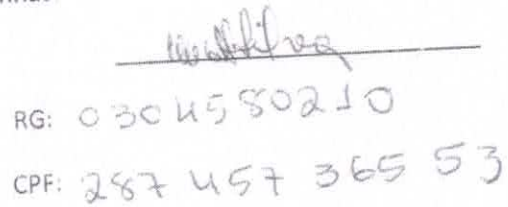 RG: 0304580210
CPF: 287 457 365 53